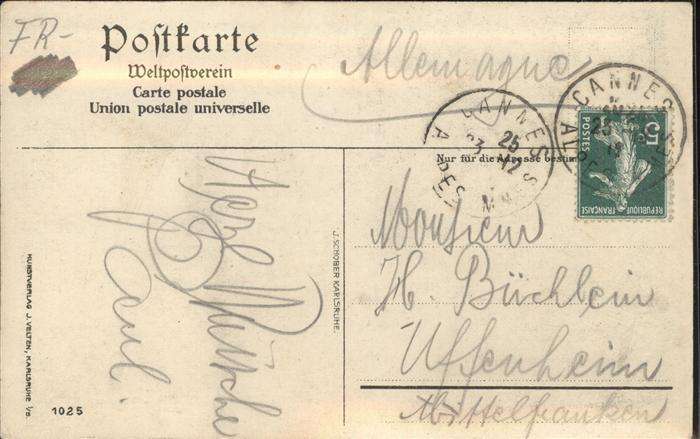 FR-
Postkarte
Weltpostverein
Carte postale
Union postale universelle
Allemagne
CANNES
25
12
CANNES
5
POSTES
REPUBLIQUE FRANÇAISE
Nur für die Adresse bestimmt
Monsieur
H. Büchlein
Uffenheim
Mittelfranken
Herzl
Wünsche
Paul.
J. SCHOBER KARLSRUHE.
KUNSTVERLAG J. VELTEN, KARLSRUHE
1025